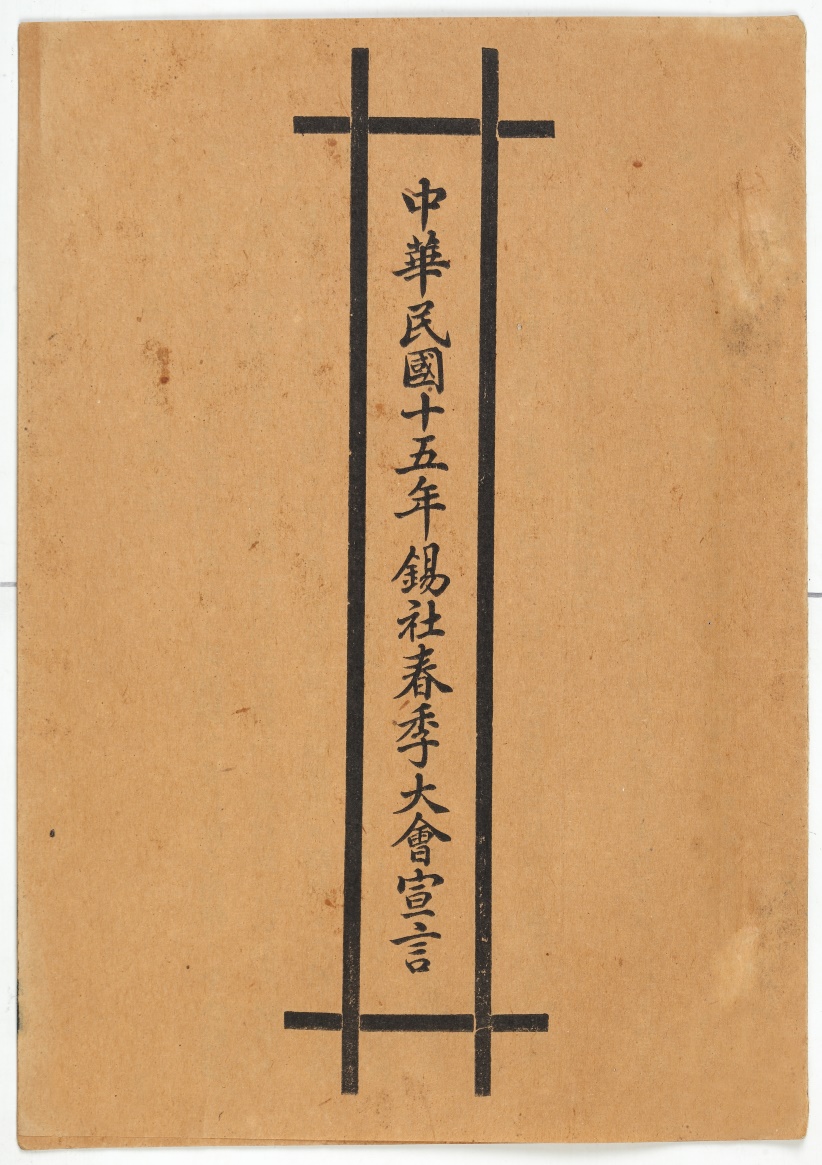 中華民國十五年錫社春季大會宣言